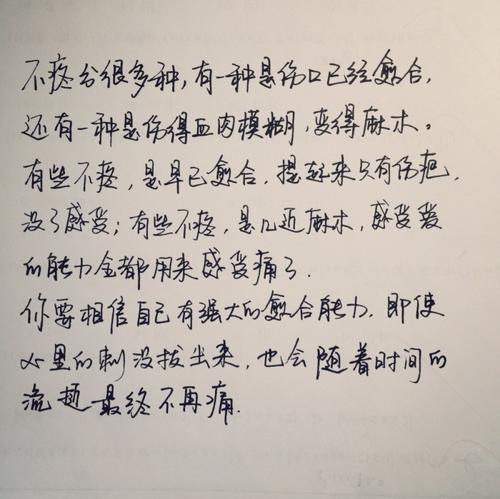 不疼分很多种，有一种是伤口已经愈合，
还有一种是伤得血肉模糊，变得麻木。
有些不疼，是早已愈合，提起来只有伤疤，
没了感受；有些不疼，是几近麻木，感受爱
的能力全都用来感受痛了．
你要相信自己有强大的愈合能力．即使
心里的刺没拔出来，也会随着时间的
流逝最终不再痛．